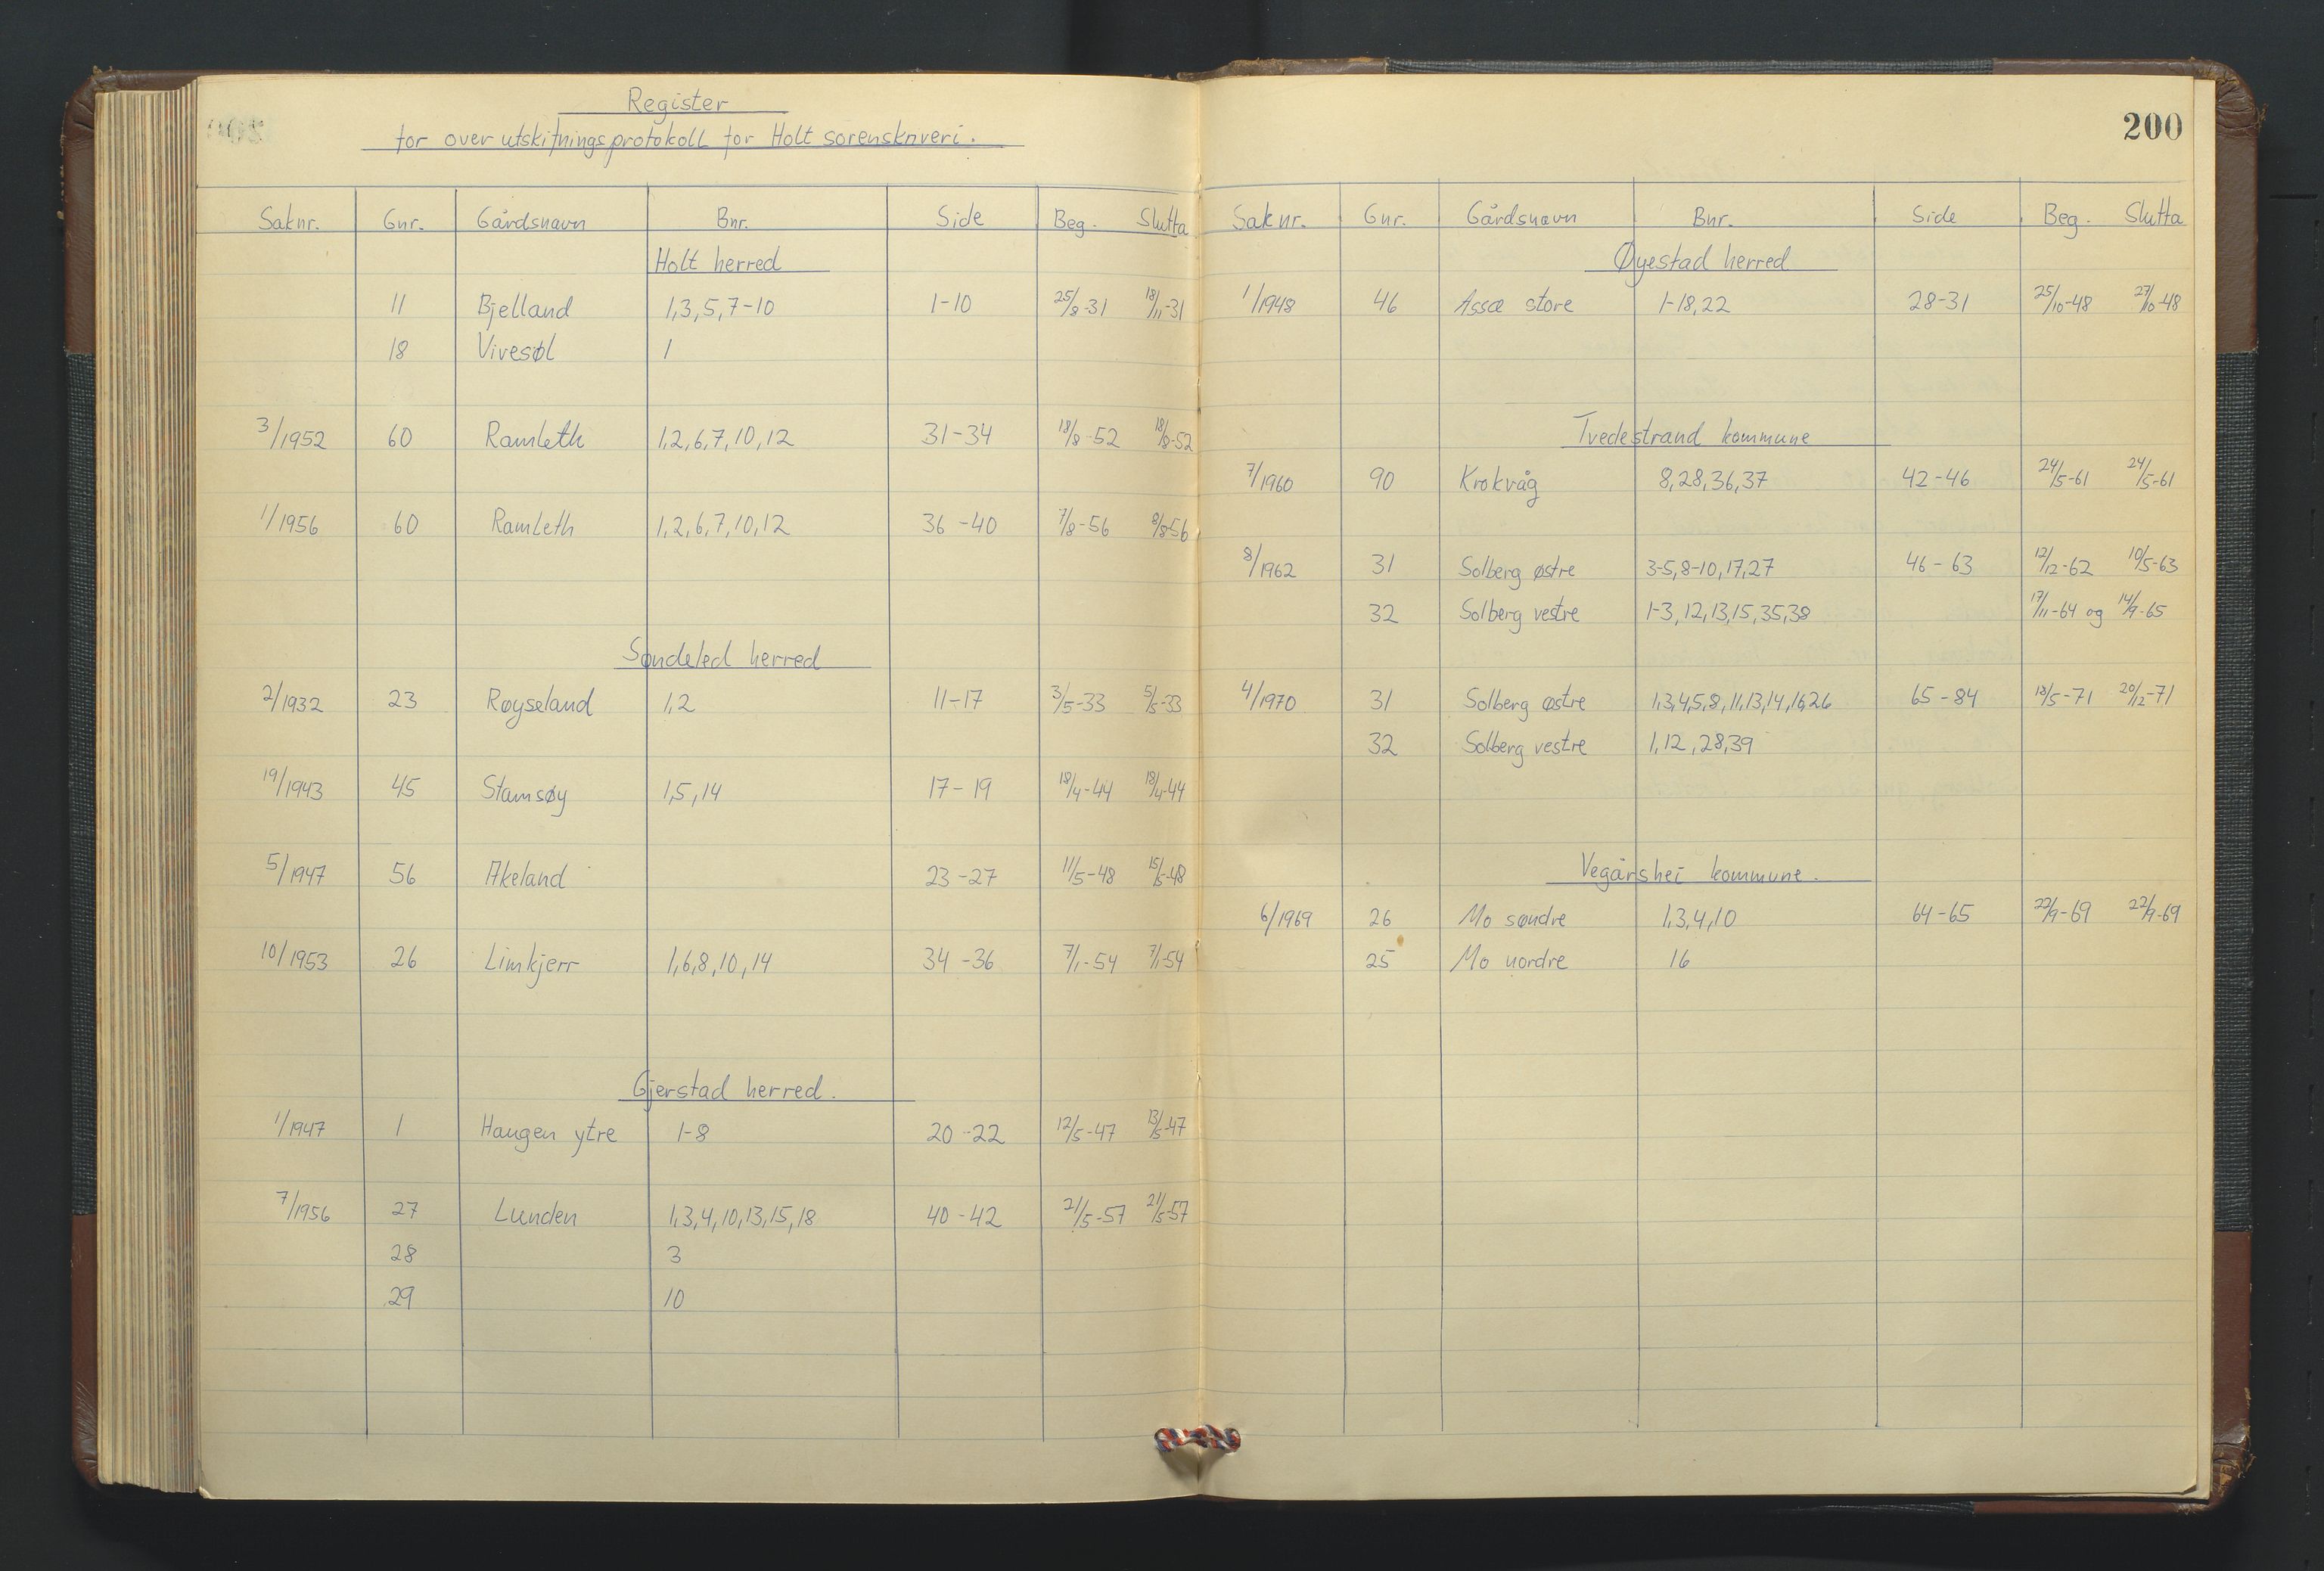 Register
for over utskiftningsprotokoll for Holt sorenskriveri.
Saknr. Gnr. Gårdsnavn Bnr. Side Beg. Slutta
Holt herred
11 Bjelland 1,3,5,7-10 1-10 25/8-31 18/11-31
18 Vivesøl 1
3/1952 60 Ramleth 1,2,6,7,10,12 31-34 18/8-52 18/8-52
1/1956 60 Ramleth 1,2,6,7,10,12 36-40 7/8-56 8/8-56
Søndeled herred
2/1932 23 Røyseland 1,2 11-17 3/5-33 5/5-33
19/1943 45 Stamsøy 1,5,14 17-19 18/4-44 18/4-44
5/1947 56 Akeland 23-27 11/5-48 15/5-48
10/1953 26 Limkjerr 1,6,8,10,14 34-36 7/1-54 7/1-54
Gjerstad herred.
1/1947 1 Haugen ytre 1-8 20-22 12/5-47 13/5-47
7/1956 27 Lunden 1,3,4,10,13,15,18 40-42 21/5-57 21/5-57
28 3
29 10
200
Saknr. Gnr. Gårdsnavn Bnr. Side Beg. Slutta
Øyestad herred
1/1948 46 Assæ store 1-18,22 28-31 25/10-48 27/10-48
Tvedestrand kommune
7/1960 90 Krokvåg 8,28,36,37 42-46 24/5-61 24/5-61
8/1962 31 Solberg østre 3-5,8-10,17,27 46-63 12/12-62 10/5-63
32 Solberg vestre 1-3,12,13,15,35,38 17/11-64 og 14/9-65
4/1970 31 Solberg østre 1,3,4,5,8,11,13,14,16,26 65-84 18/5-71 20/12-71
32 Solberg vestre 1,12,28,39
Vegårshei kommune.
6/1969 26 Mo søndre 1,3,4,10 64-65 22/9-69 22/9-69
25 Mo nordre 16